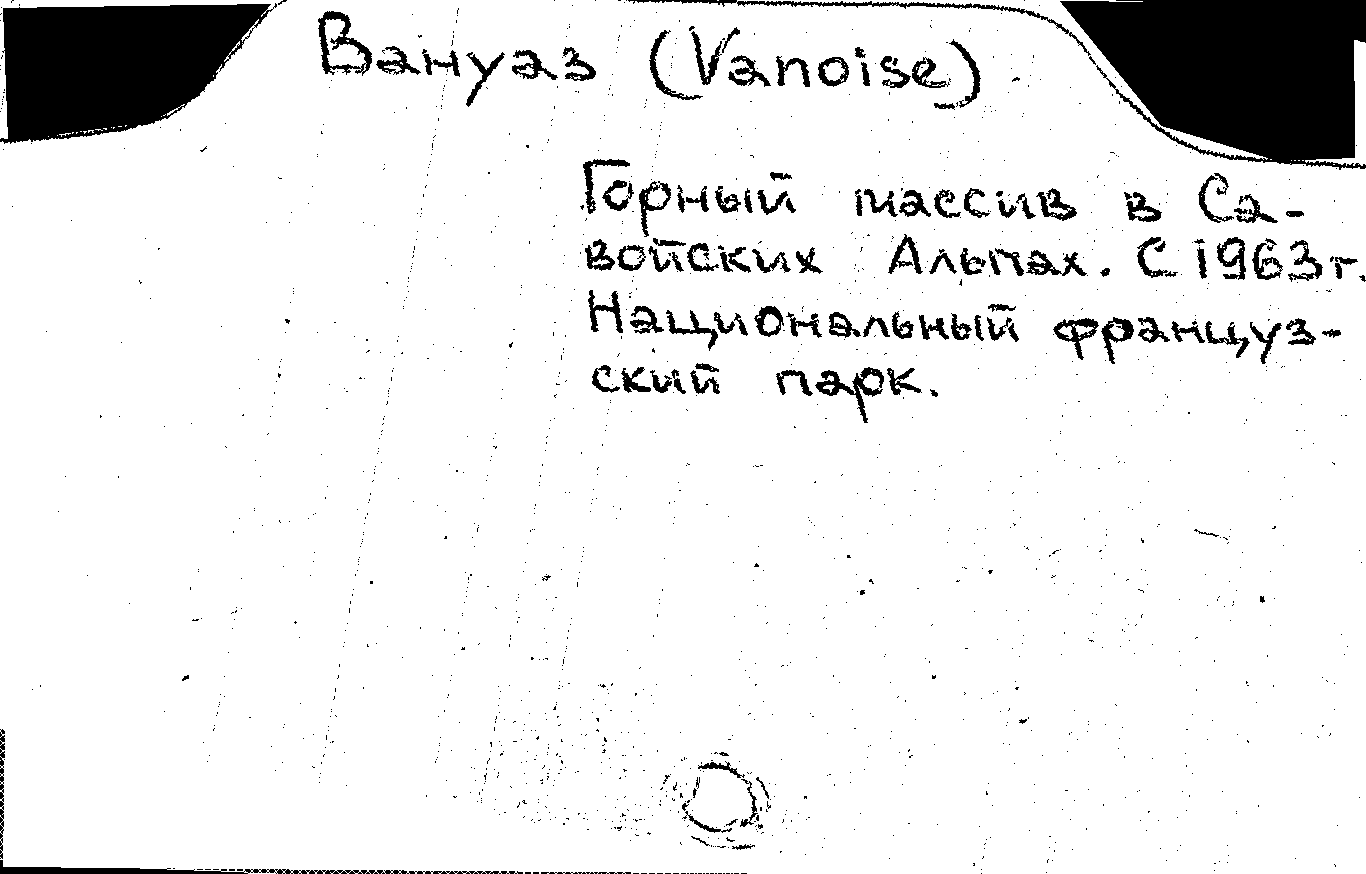 Вануаз (Vanoise)
Горный массив в Са-
войских Альпах. С 1963г.
Национальный француз-
ский парк.